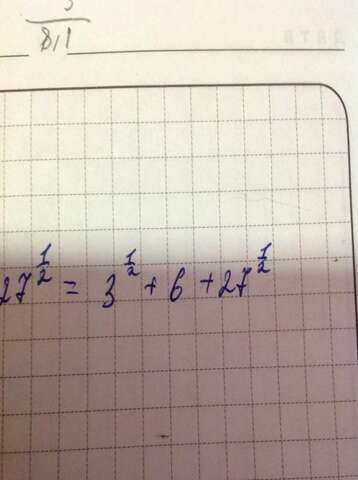 8,1
27^{1/2} = 3^{1/2} + 6 + 27^{1/2}